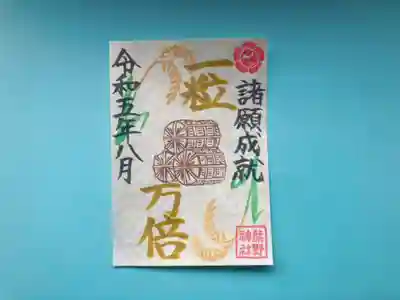 諸願成就
一粒
万倍
令和五年八月
熊野
神社